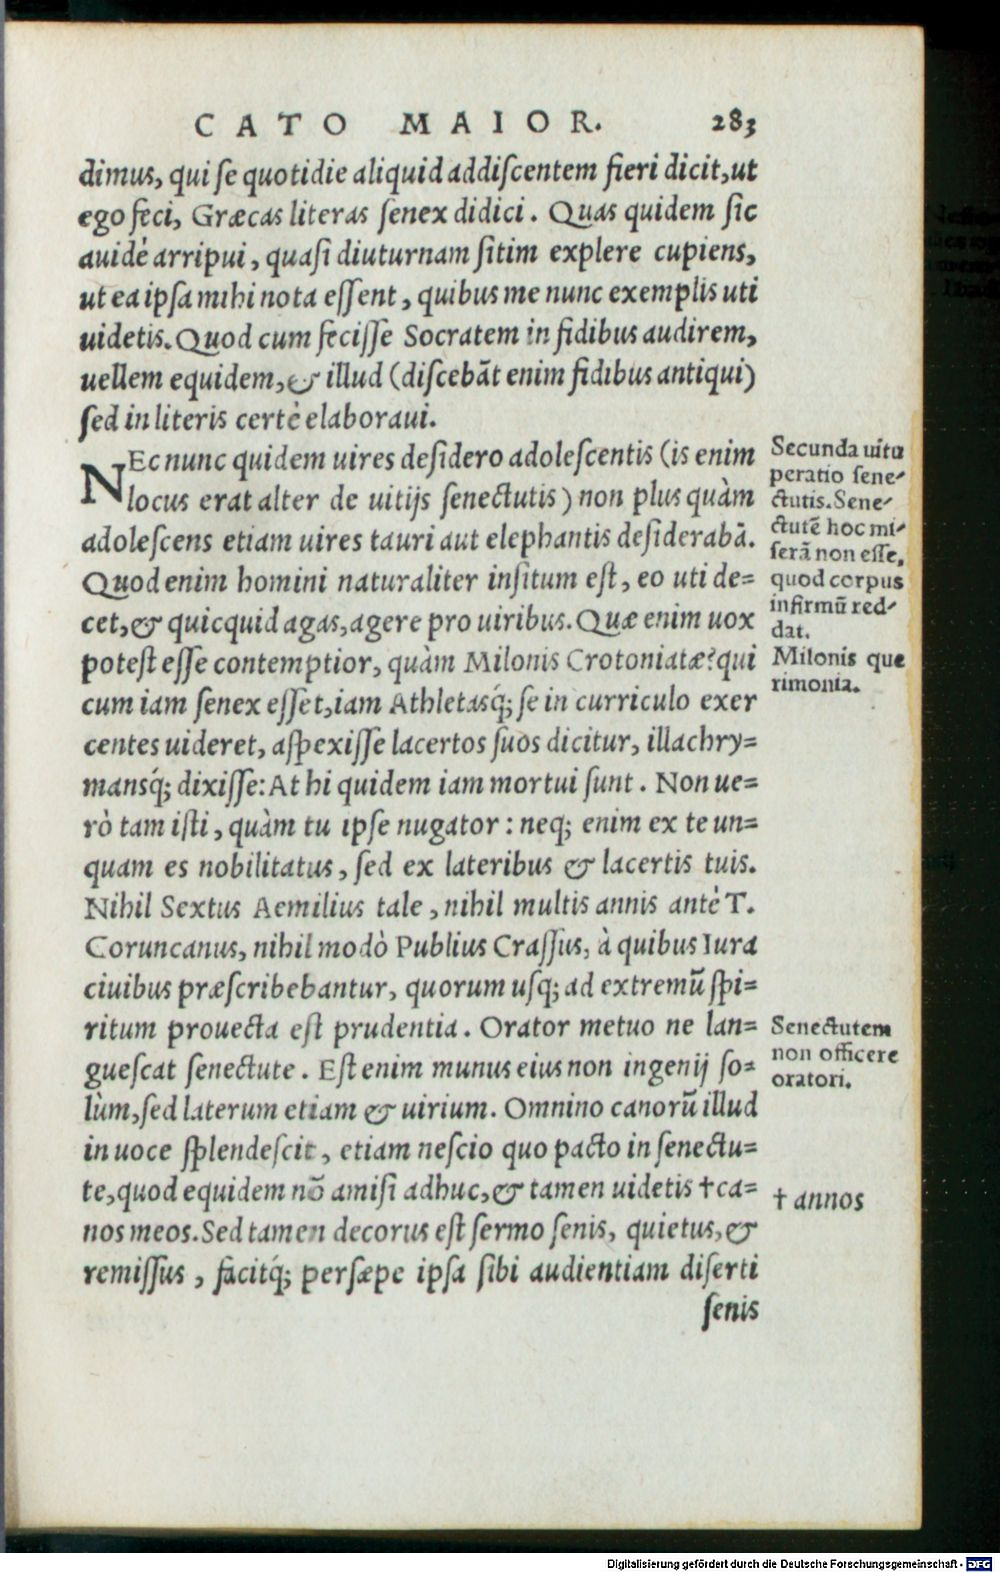 CATO MAIOR. 283
dimus, qui se quotidie aliquid addiscentem fieri dicit, ut
ego feci, Græcas literas senex didici. Quas quidem sic
auidè arripui, quasi diuturnam sitim explere cupiens,
ut ea ipsa mihi nota essent, quibus me nunc exemplis uti
uidetis. Quod cum fecisse Socratem in fidibus audirem,
uellem equidem, & illud (discebāt enim fidibus antiqui)
sed in literis certè elaboraui.
NEc nunc quidem uires desidero adolescentis (is enim
locus erat alter de uitijs senectutis) non plus quàm
adolescens etiam uires tauri aut elephantis desiderabā.
Quod enim homini naturaliter insitum est, eo uti de=
cet, & quicquid agas, agere pro uiribus. Quæ enim uox
potest esse contemptior, quàm Milonis Crotoniatæ? qui
cum iam senex esset, iam Athletasq́; se in curriculo exer
centes uideret, aspexisse lacertos suos dicitur, illachry=
mansq́; dixisse: At hi quidem iam mortui sunt. Non ue=
rò tam isti, quàm tu ipse nugator: neq; enim ex te un=
quam es nobilitatus, sed ex lateribus & lacertis tuis.
Nihil Sextus Aemilius tale, nihil multis annis antè T.
Coruncanus, nihil modò Publius Crassus, à quibus Iura
ciuibus præscribebantur, quorum usq; ad extremū spi=
ritum prouecta est prudentia. Orator metuo ne lan=
guescat senectute. Est enim munus eius non ingenij so=
lùm, sed laterum etiam & uirium. Omnino canorū illud
in uoce splendescit, etiam nescio quo pacto in senectu=
te, quod equidem nō amisi adhuc, & tamen uidetis † ca=
nos meos. Sed tamen decorus est sermo senis, quietus, &
remissus, facitq́; persæpe ipsa sibi audientiam diserti
senis
Secunda uitu
peratio sene-
ctutis. Sene-
ctutē hoc mi-
serā non esse,
quod corpus
infirmū red-
dat.
Milonis que
rimonia.
Senectutem
non officere
oratori.
† annos
Digitalisierung gefördert durch die Deutsche Forschungsgemeinschaft - DFG